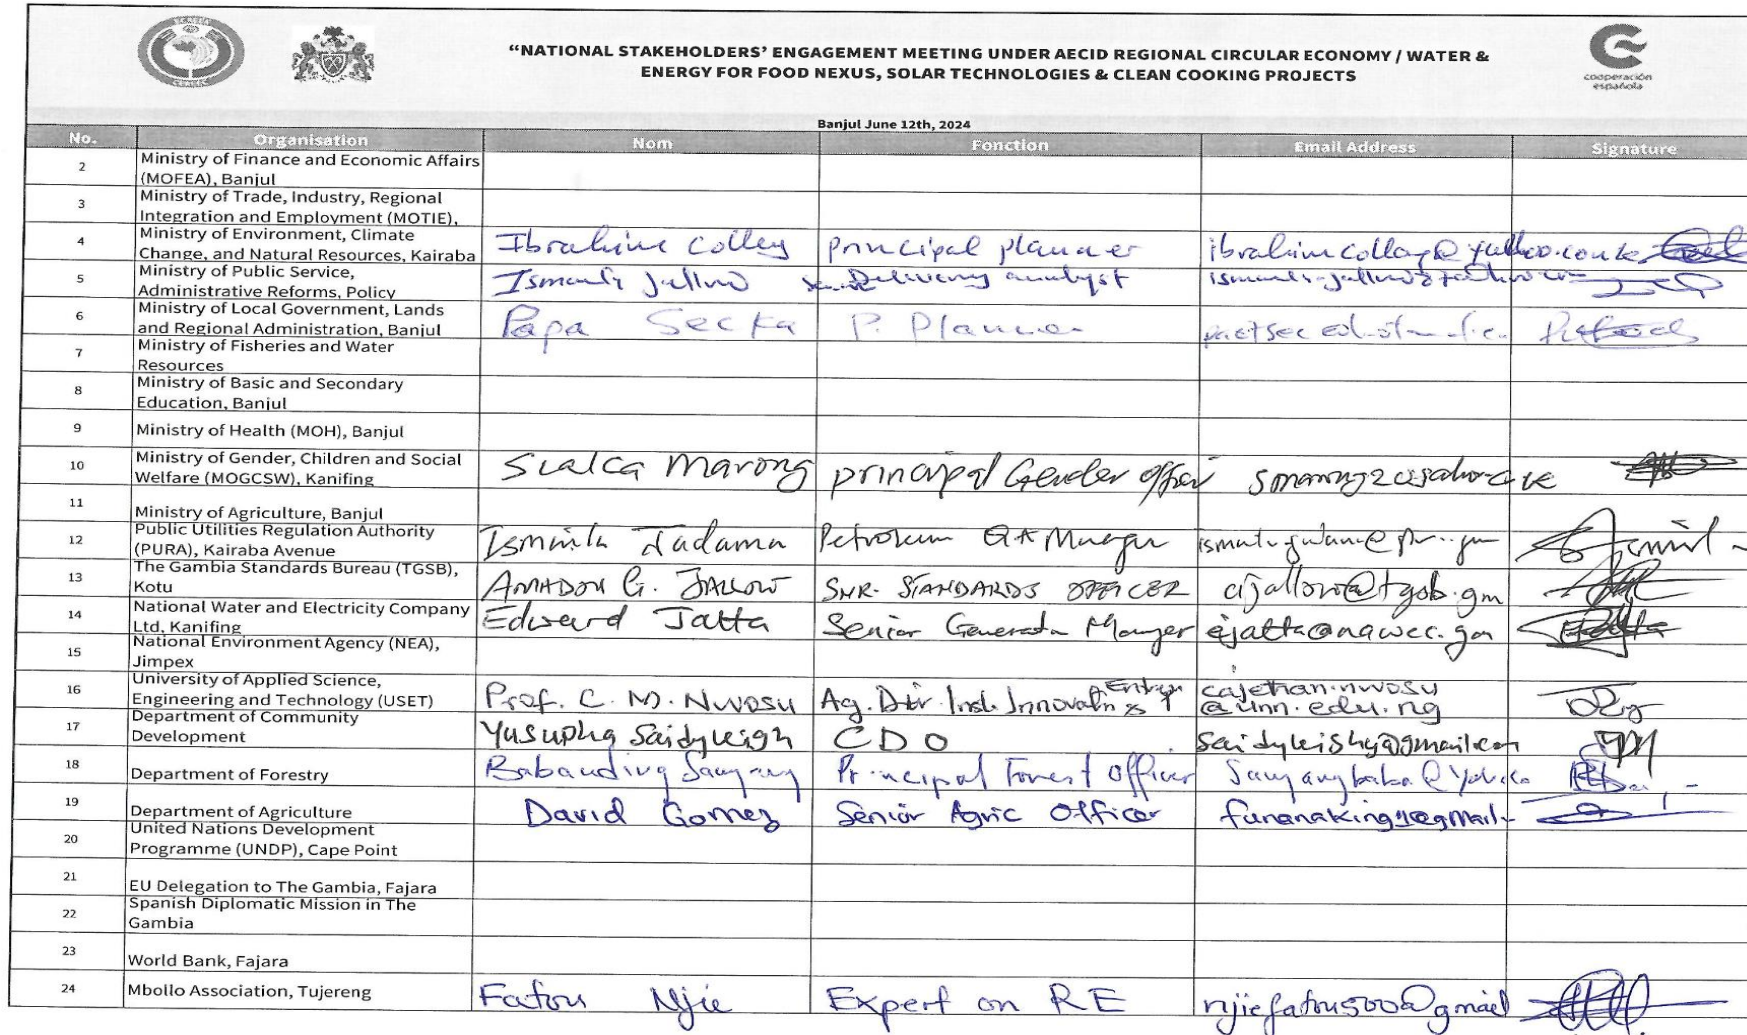 "NATIONAL STAKEHOLDERS' ENGAGEMENT MEETING UNDER AECID REGIONAL CIRCULAR ECONOMY / WATER &
ENERGY FOR FOOD NEXUS, SOLAR TECHNOLOGIES & CLEAN COOKING PROJECTS
cooperación
española
Banjul June 12th, 2024
No. Organisation Nom Fonction Email Address Signature
2 Ministry of Finance and Economic Affairs
(MOFEA), Banjul
3 Ministry of Trade, Industry, Regional
Integration and Employment (MOTIE),
4 Ministry of Environment, Climate
Change, and Natural Resources, Kairaba
Ibrahim Colley principal planner
5 Ministry of Public Service,
Administrative Reforms, Policy
Delivery analyst
6 Ministry of Local Government, Lands
and Regional Administration, Banjul
Papa Secka P. Planner
7 Ministry of Fisheries and Water
Resources
8 Ministry of Basic and Secondary
Education, Banjul
9 Ministry of Health (MOH), Banjul
10 Ministry of Gender, Children and Social
Welfare (MOGCSW), Kanifing
Marong principal Gender
11 Ministry of Agriculture, Banjul
12 Public Utilities Regulation Authority
(PURA), Kairaba Avenue
Jadama
13 The Gambia Standards Bureau (TGSB),
Kotu
AMADOU G. JALLOW SNR. STANDARDS OFFICER
14 National Water and Electricity Company
Ltd, Kanifing
Edward Jatta Senior Manager ejatta@nawec.gm
15 National Environment Agency (NEA),
Jimpex
16 University of Applied Science,
Engineering and Technology (USET)
Prof. C. M. Nwosu Ag. Dir. Inst. cajethan.nwosu
@unn.edu.ng
17 Department of Community
Development
Yusupha CDO
18 Department of Forestry
Principal Forest Officer
19 Department of Agriculture
David Gomez Senior Agric Officer
20 United Nations Development
Programme (UNDP), Cape Point
21 EU Delegation to The Gambia, Fajara
22 Spanish Diplomatic Mission in The
Gambia
23 World Bank, Fajara
24 Mbollo Association, Tujereng
Fatou Njie Expert on RE njiefatou500@gmail